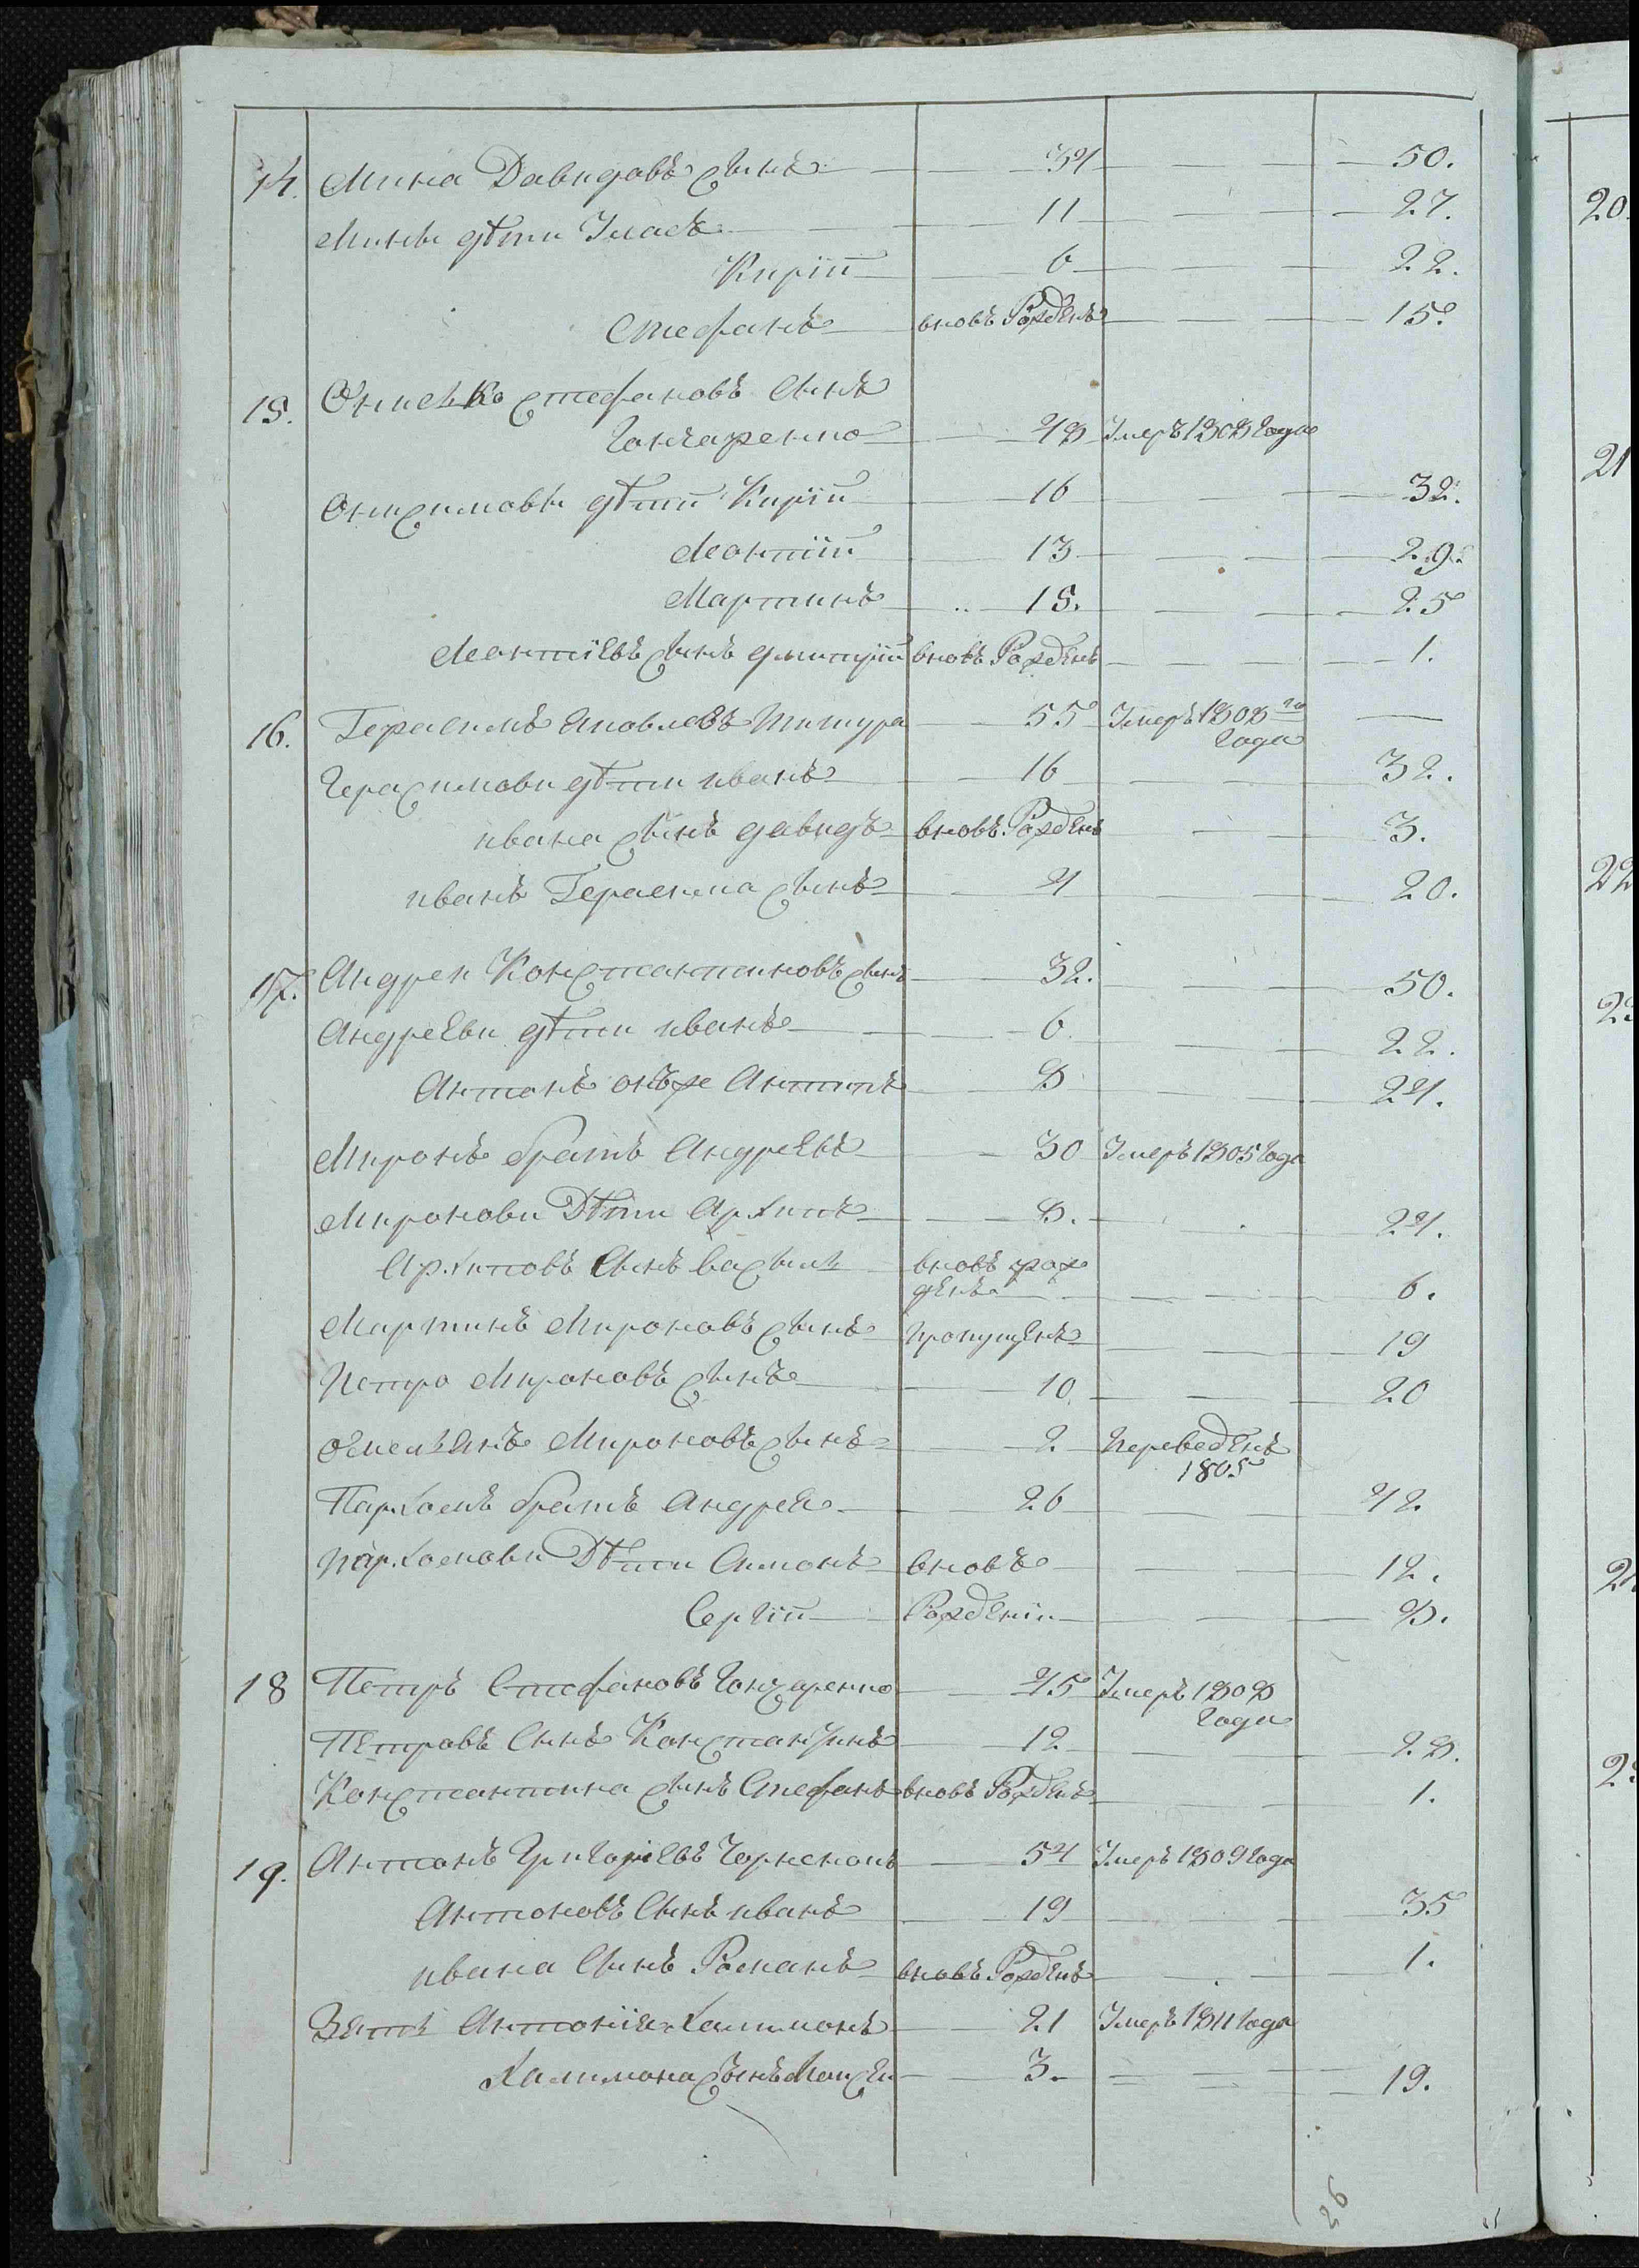 14. Мина Давидовъ сынъ 34 50.
Мини дѣти Уласъ 11 27.
Кирій 6 22.
Стефанъ вновь Рожденъ 15.
15. Онисько Стефановъ сынъ
Гончаренко 48 Умеръ 1808 Года
Онисимовы дѣтий Кирій 16 32.
Леонтій 13 29.
Мартинъ 15. 25
Леонтіевъ сынъ дмитрій вновь Рожденъ 1.
16. Герасимъ Яковлевъ Титура 55 Умеръ 1808 го
Года
Герасимови дѣти иванъ 16 32.
ивана сынъ давидъ вновь Рожденъ 3.
иванъ Герасима сынъ 4 20.
17. Андрей Константиновъ сынъ 32. 50.
Андрееви дѣти иванъ 6. 22.
Антонъ онъже Антипъ 8 24.
Миронъ братъ Андреевъ 30 Умеръ 1805 Года
Миронови Дѣти Архипъ 8. 24.
Архиповъ Сынъ Василь вновь рож
денъ 6.
Мартинъ Мироновъ сынъ пропущенъ 19
Петро Мироновъ сынъ 10 20
омельянъ Мироновъ сынъ 2 переведенъ
1805
Пархомъ братъ Андрея 26 42.
пархомови Дѣти Симонъ вновъ 12.
Сергій Рожденіи 8.
18 Петръ Стефановъ Гончаренко 45 Умеръ 1808
Года
Петровъ Сынъ Константинъ 12 28.
Константина сынъ Стефанъ вновь Рожденъ 1.
19. Антонъ Григоріевъ 54 Умеръ 1809 Года
Антоновъ Сынъ иванъ 19 35
ивана Сынъ Романъ вновь Рожденъ 1.
Зять Антонія Халимонъ 21 Умеръ 1811 Года
Халимона сынъ 3. 19.
20.
21
22